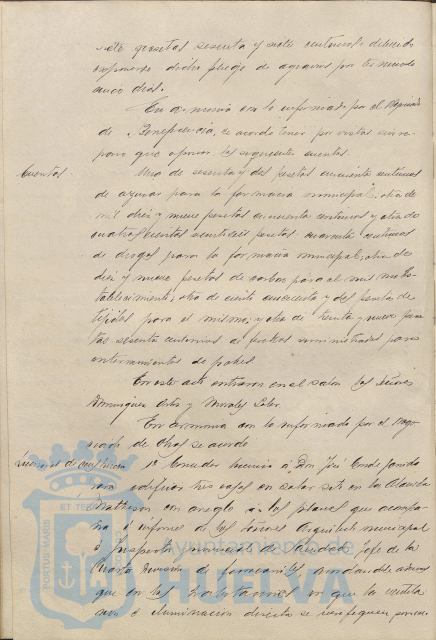 siete pesetas sesenta y siete centimos debiendo
exponerse dicho pliego de agravios por termino de
cinco dias.
En armonia con lo informado por el Negociado
de Beneficencia, se acordó tener por vistas sin re-
paro que oponer las siguientes cuentas.
Cuentas. Una de sesenta y dos pesetas cincuenta centimos
de azucar para la farmacia municipal; otra de
mil diez y nueve pesetas cincuenta centimos y otra de
cuatrocientas veintiseis pesetas cuarenta centimos
de drogas para la farmacia municipal; otra de
diez y nueve pesetas de carbon para el mismo es-
tablecimiento; otra de ciento cincuenta y dos pesetas de
tejidos para el mismo; y otra de treinta y nueve pese-
tas sesenta centimos de suministrados para
enterramientos de pobres.
En este acto entraron en el salon los Señores
Dominguez Ortiz y Morales
En armonia con lo informado por el Nego-
ciado de Obras se acordó
Licencias de construccion 1º Conceder licencia á Don José Conde Garrido
para edificar tres casas en solar sito en la Alameda
con arreglo á los planos que acompa-
ña é informe de los Señores Arquitecto municipal
é Jefe de la
Cuarta Division de ferrocarriles
que en las habitaciones en que la ventila-
cion é iluminacion directa se verifiquen por
PORTUS MARIS ET TERRÆ
Ayuntamiento de
HUELVA